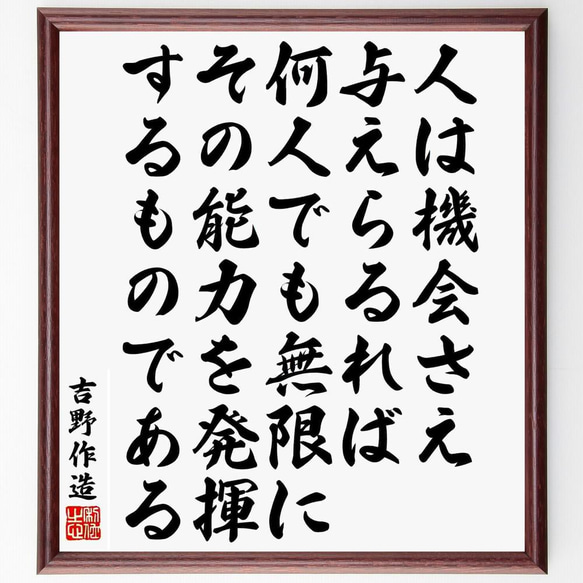 人は機会さえ
与えらるれば
何人でも無限に
その能力を発揮
するものである
吉野作造